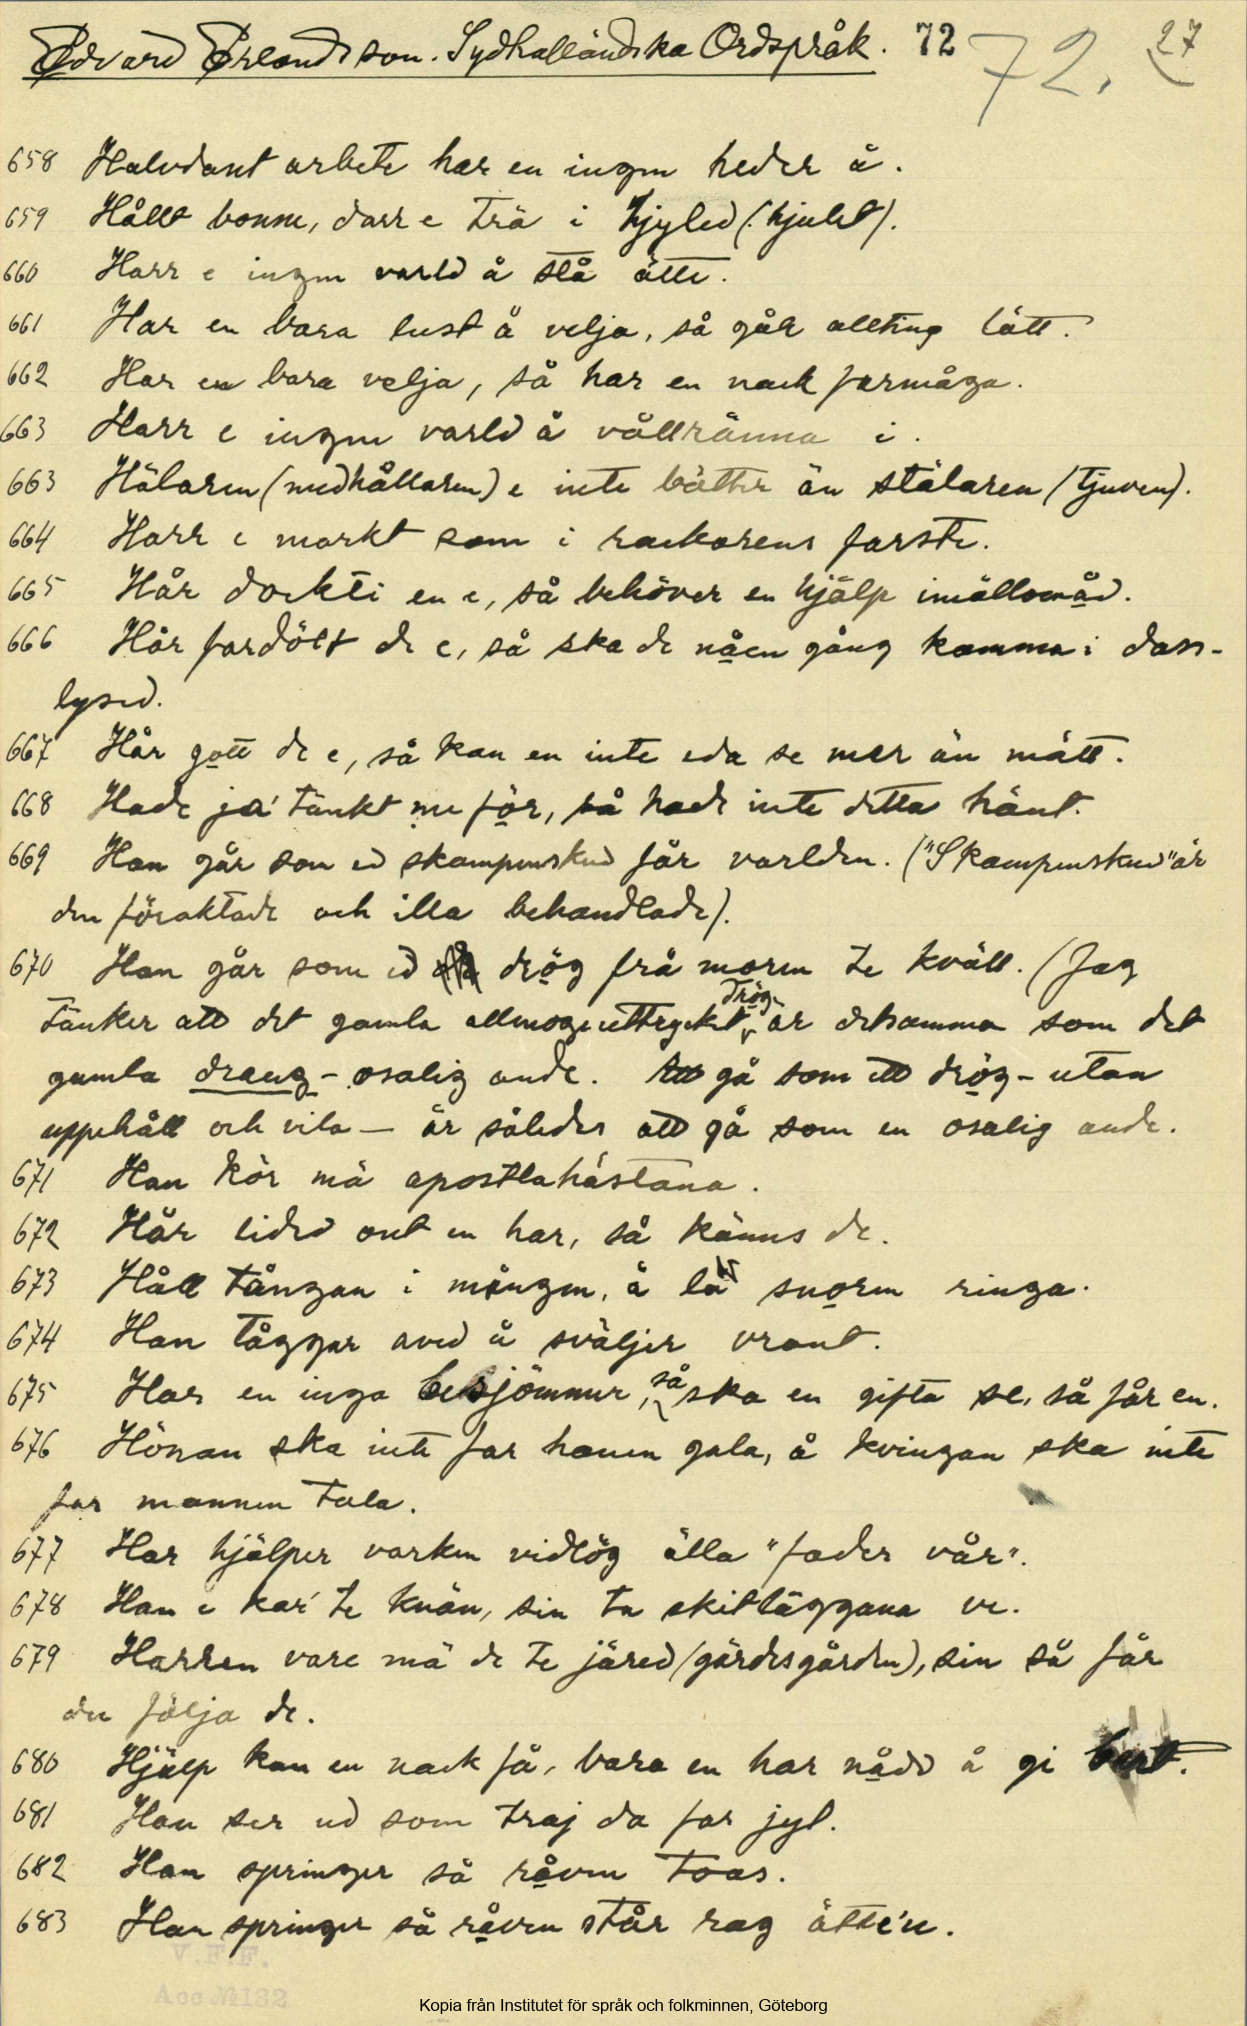 Edvard Erlandsson. Sydhalländska Ordspråk. 72 72. 27
658 Halvdant arbete har en ingen heder å.
659 Hållt bonne, darr e trä i hjyled (hjulet).
660 Harr e ingen varld å stå ätte.
661 Har en bara lust å velja, så går allting lätt.
662 Har en bara velja, så har en nack farmåga.
663 Harr e ingen varld å vållränna i.
663 Hälaren (medhållaren) e inte bätter än stälaren (tjuven).
664 Harr e morkt som i rackarens farste.
665 Hår dockti en e, så behöver en hjälp imällomåd.
666 Hår fardölt de e, så ska de nåen gång komma i dass-
lysed.
667 Hår gott de e, så kan en inte eda se mer än mätt.
668 Hade ja' tänkt me för, så hade inte detta hänt.
669 Han går som ed skampenskud får varlden. ("Skampenskud" är
den föraktade och illa behandlade).
670 Han går som ed drög frå moren te kväll. (Jag
tänker att det gamla allmogeuttrycket drög är detsamma som det
gamla draug - osalig ande. Att gå som ett drög - utan
uppehåll och vila — är således att gå som en osalig ande.
671 Han kör mä apostlahästana.
672 Hår lided ont en har, så känns de.
673 Håll tångan i mången, å la snoren ringa.
674 Han tåggar aved å sväljer vrant.
675 Har en inga besjömmer, så ska en gifta se, så får en.
676 Hönan ska inte far hanen gala, å kvingan ska inte
far mannen tala.
677 Har hjälper varken vidlög älla "fader vår".
678 Han e kar' te knän, sin ta skitläggana ve.
679 Harren vare mä de te järed (gärdesgården), sin så får
du följa de.
680 Hjälp kan en nack få, bara en har nåd å gi bort.
681 Han ser ud som traj da far jyl.
682 Han springer så råven toas.
683 Han springer så råven står rag ätte'n.
V.F.F.
Acc. № 132
Kopia från Institutet för språk och folkminnen, Göteborg